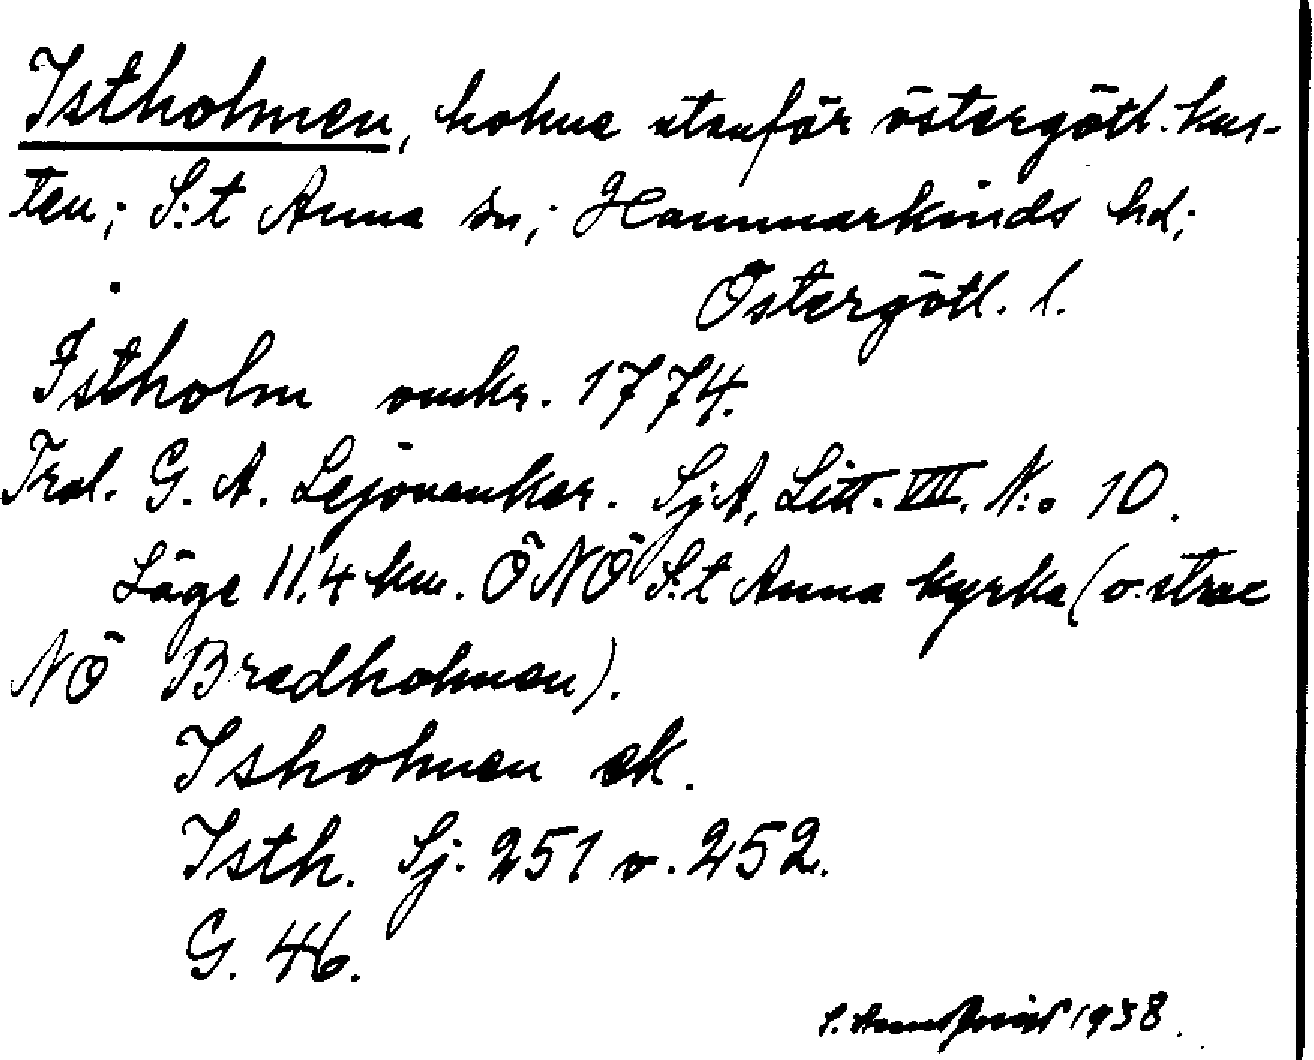 Istholmen, holme utanför östergötl. kus-
ten; S:t Anna sn; Hammarkinds hd;
Östergötl. l.
Istholm omkr. 1774.
Tral. G. A. Lejonanker. SjA, Litt. VII. N:o 10.
Läge 11,4 km. ÖNÖ S:t Anna kyrka (o. strax
NÖ Bredholmen).
Isholmen ek.
Isth. Sj. 251 o. 252.
G. 46.
1938.